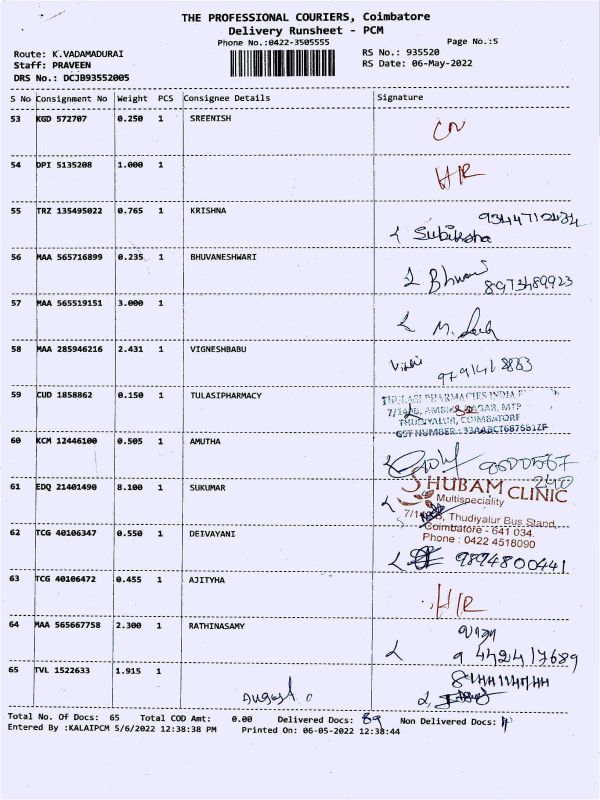 THE PROFESSIONAL COURIERS, Coimbatore
Delivery Runsheet - PCM
Phone No.:0422-3505555
Page No.:5
Route: K.VADAMADURAI
RS No.: 935520
Staff: PRAVEEN
RS Date: 06-May-2022
DRS No.: DCJB93552005
S No Consignment No Weight PCS Consignee Details Signature
53 KGD 572707 0.250 1 SREENISH
CN
54 DPI 5135208 1.000 1
HR
55 TRZ 135495022 0.765 1 KRISHNA
Subiksha
56 MAA 565716899 0.235 1 BHUVANESHWARI
8973489923
57 MAA 565519151 3.000 1
58 MAA 285946216 2.431 1 VIGNESHBABU
59 CUD 1858862 0.150 1 TULASIPHARMACY
THULASI PHARMACIES INDIA
THUDIYALUR, COIMBATORE
GST NUMBER : 33AABCT6876B1ZF
60 KCM 12446100 0.505 1 AMUTHA
61 EDQ 21401490 8.100 1 SUKUMAR
SHUBAM CLINIC
Multispeciality
Thudiyalur Bus Stand
Coimbatore - 641 034.
Phone : 0422 4518090
62 TCG 40106347 0.550 1 DEIVAYANI
9894800441
63 TCG 40106472 0.455 1 AJITYHA
H/R
64 MAA 565667758 2.300 1 RATHINASAMY
9442417689
65 TVL 1522633 1.915 1
Total No. Of Docs: 65 Total COD Amt: 0.00 Delivered Docs: Non Delivered Docs:
Entered By :KALAIPCM 5/6/2022 12:38:38 PM Printed On: 06-05-2022 12:38:44